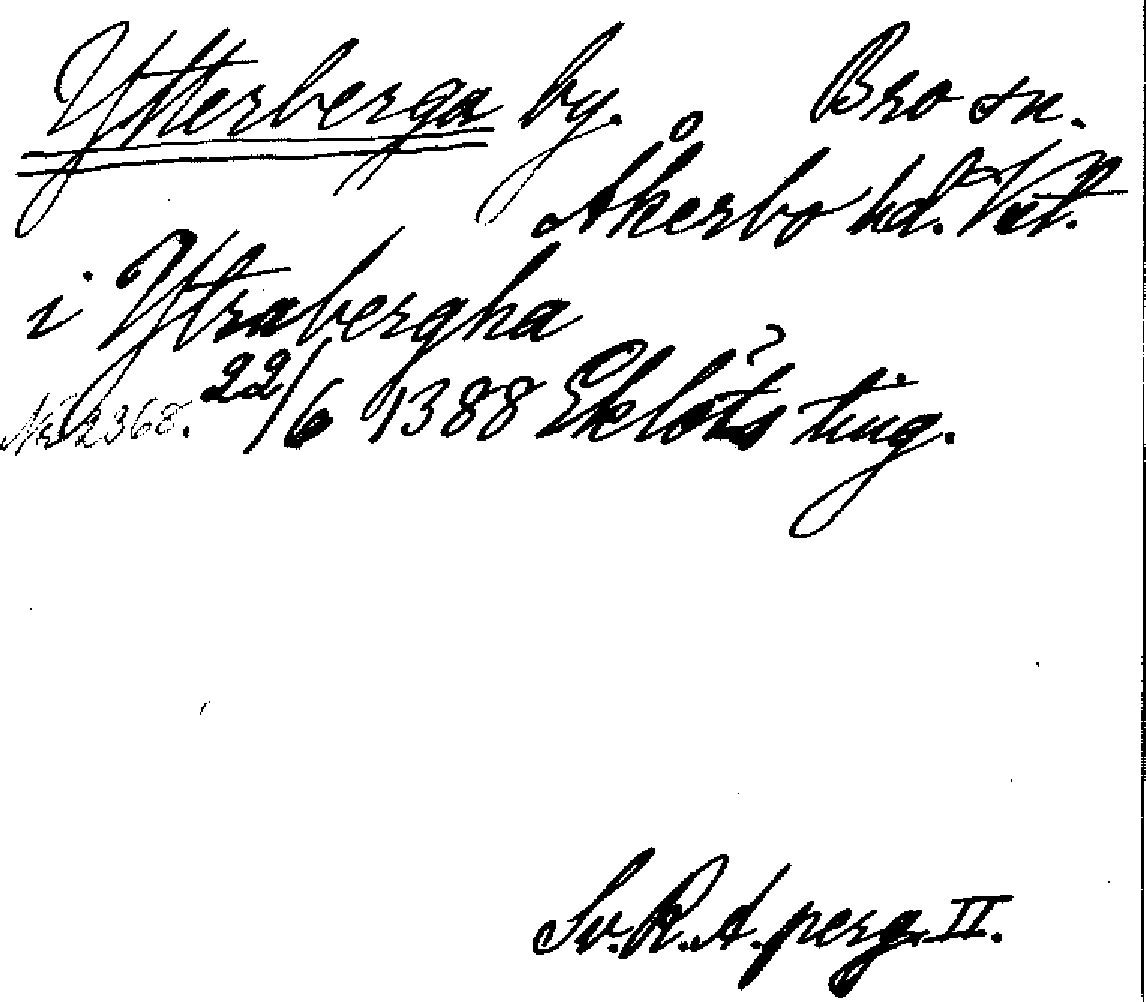 Ytterberga by. Bro sn.
Åkerbo hd. Vstl.
i Ytrabergha
Nr 2368. 22/6 1388 Ekløts? ting.
Sv. R. A. perg. II.